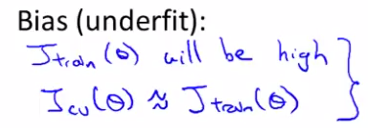 Bias (underfit):
J_train(θ) will be high
J_cv(θ) ≈ J_train(θ)